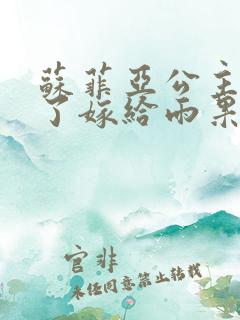 蘇菲亞公主
了嫁給雨果
官非
未經同意禁止轉載